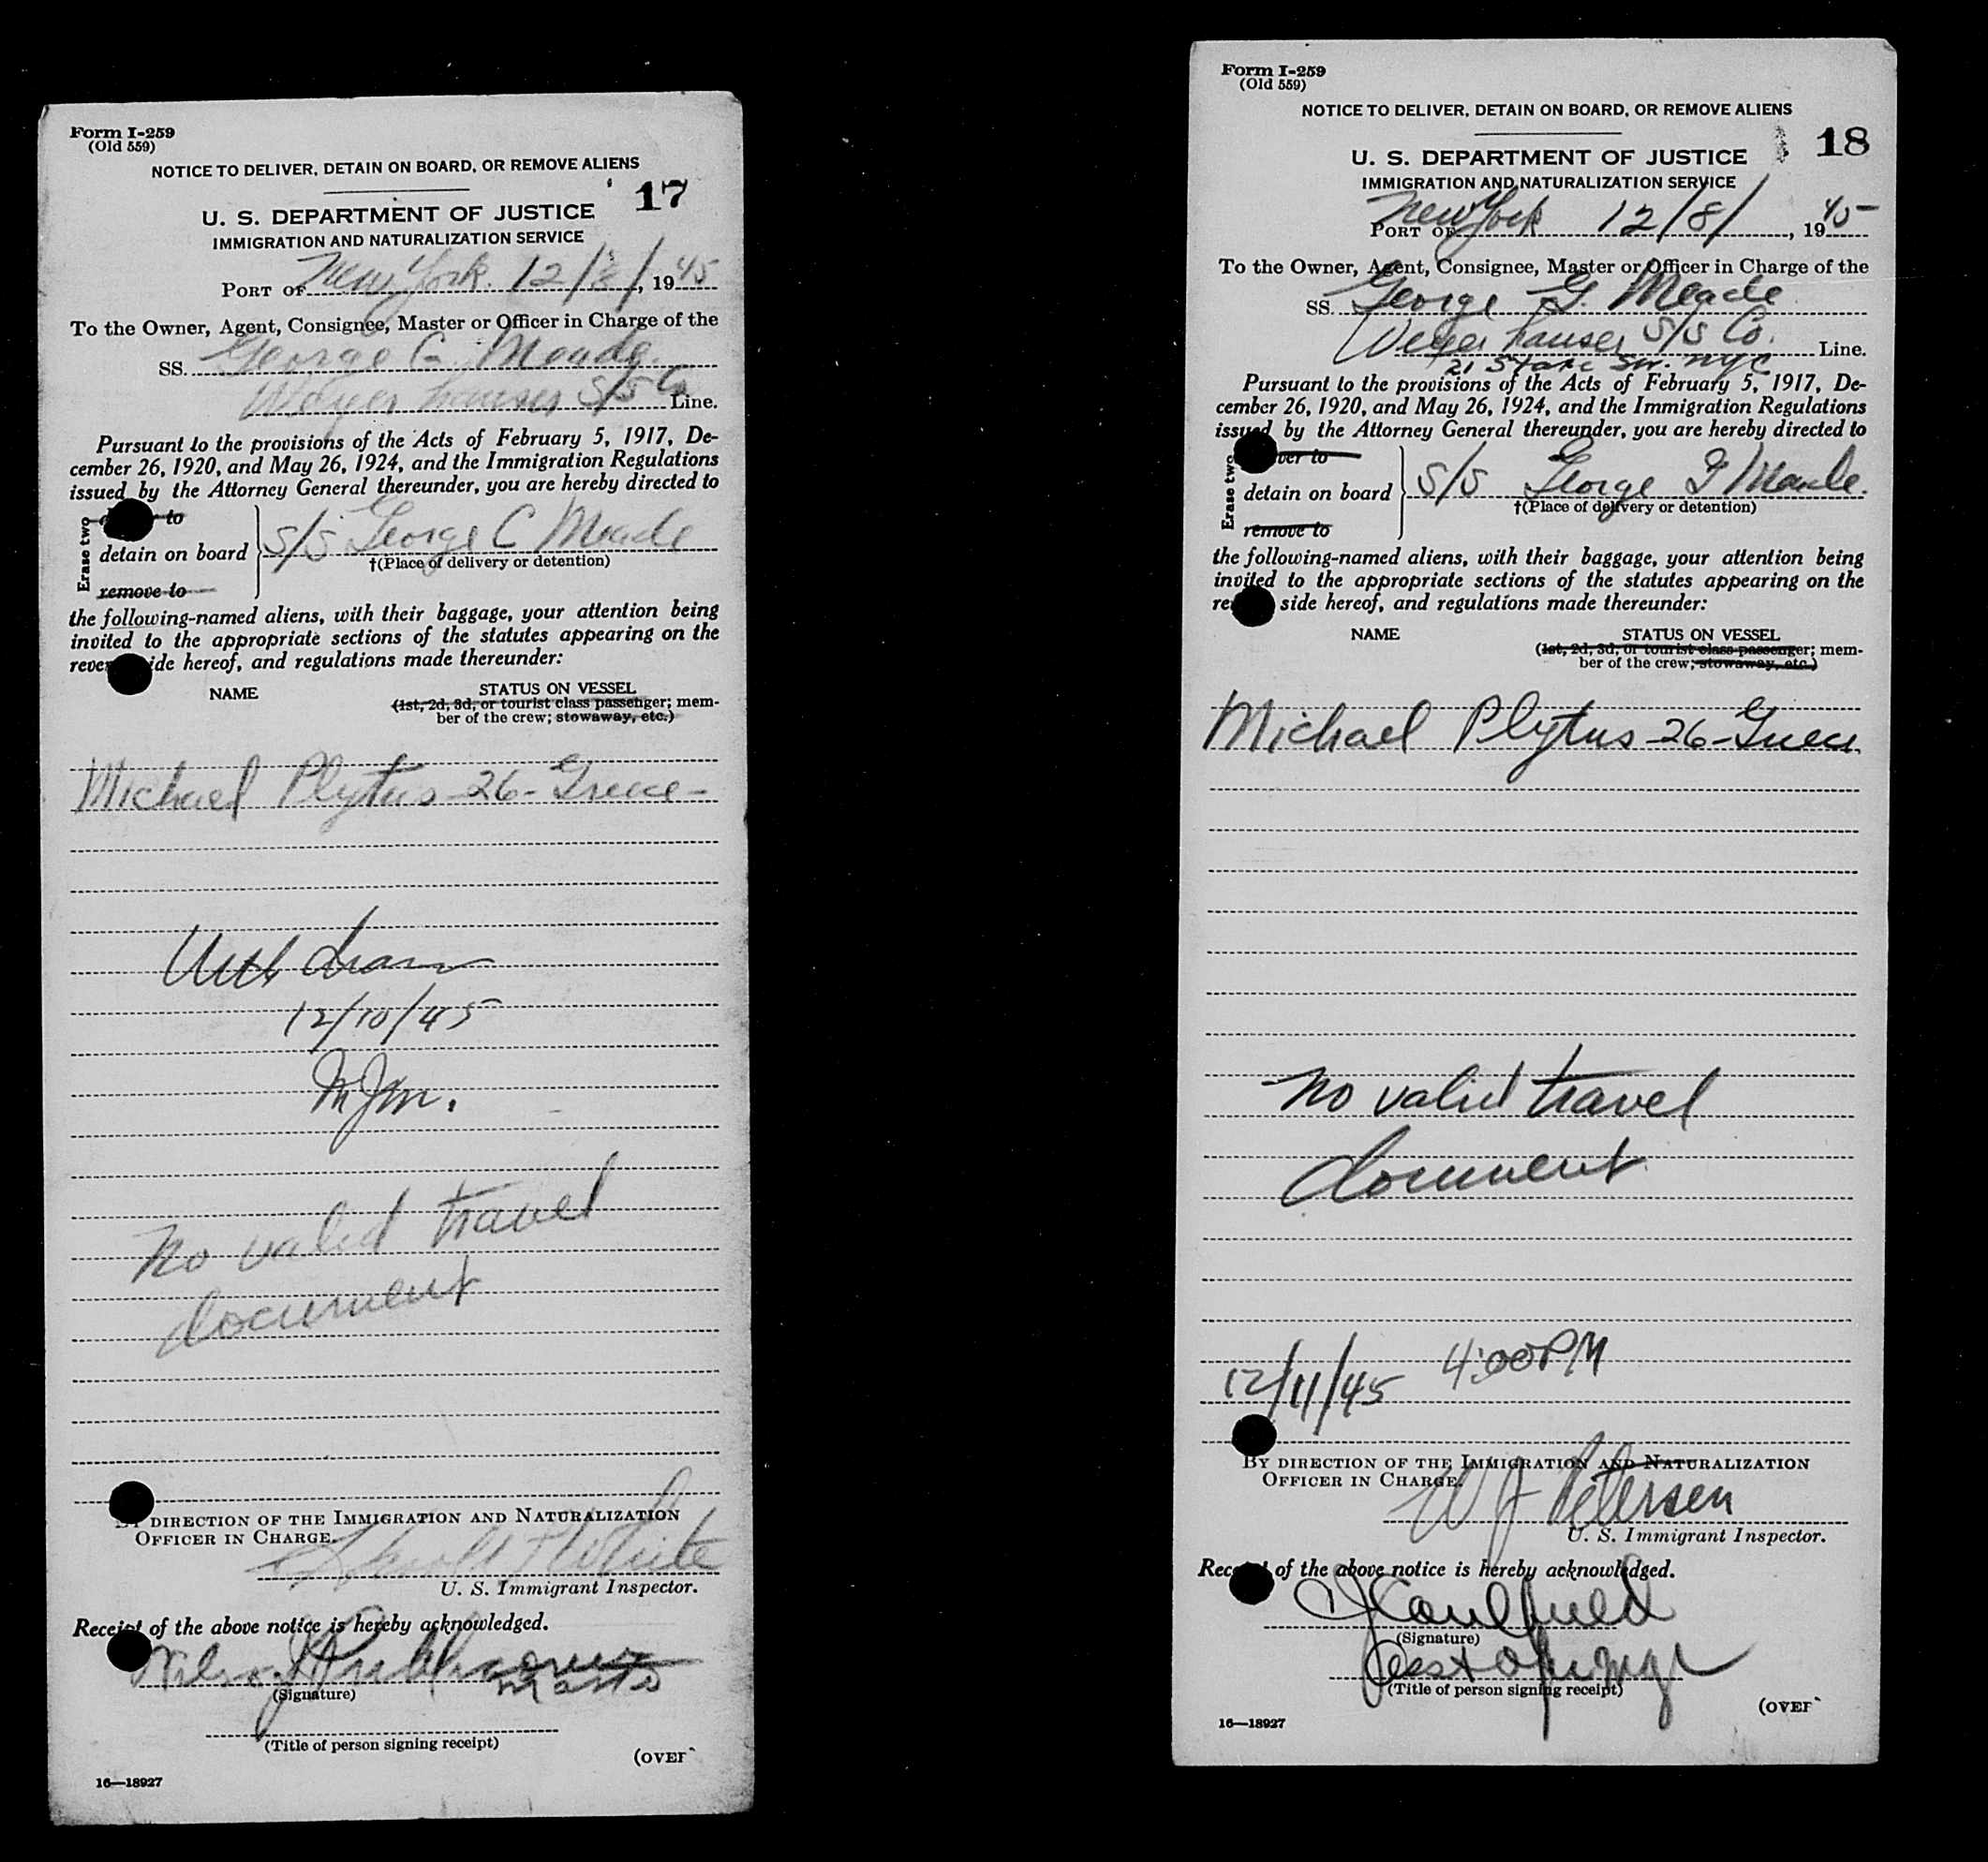 Form I-259
(Old 559)
NOTICE TO DELIVER, DETAIN ON BOARD, OR REMOVE ALIENS
17
U. S. DEPARTMENT OF JUSTICE
IMMIGRATION AND NATURALIZATION SERVICE
PORT OF New York. 12/8/, 1945
To the Owner, Agent, Consignee, Master or Officer in Charge of the
SS. George G. Meade
Weyerhauser S/S Co Line.
Pursuant to the provisions of the Acts of February 5, 1917, De-
cember 26, 1920, and May 26, 1924, and the Immigration Regulations
issued by the Attorney General thereunder, you are hereby directed to
Erase two
to
detain on board
remove to
S/S George G Meade
†(Place of delivery or detention)
the following-named aliens, with their baggage, your attention being
invited to the appropriate sections of the statutes appearing on the
reverse side hereof, and regulations made thereunder:
NAME
STATUS ON VESSEL
(1st, 2d, 3d, or tourist class passenger; mem-
ber of the crew; stowaway, etc.)
Michael Plytus - 26 - Greece -
Withdrawn
12/10/45
MJM.
No valid travel
document
BY DIRECTION OF THE IMMIGRATION AND NATURALIZATION
OFFICER IN CHARGE.
White
U. S. Immigrant Inspector.
Receipt of the above notice is hereby acknowledged.
Master
(Signature)
(Title of person signing receipt)
(OVER
16—18927
Form I-259
(Old 559)
NOTICE TO DELIVER, DETAIN ON BOARD, OR REMOVE ALIENS
18
U. S. DEPARTMENT OF JUSTICE
IMMIGRATION AND NATURALIZATION SERVICE
PORT OF New York 12/8/, 1945
To the Owner, Agent, Consignee, Master or Officer in Charge of the
SS. George G. Meade
Weyerhauser S/S Co. Line.
21 State St. NYC
Pursuant to the provisions of the Acts of February 5, 1917, De-
cember 26, 1920, and May 26, 1924, and the Immigration Regulations
issued by the Attorney General thereunder, you are hereby directed to
Erase two
ver to
detain on board
remove to
S/S George G Meade.
†(Place of delivery or detention)
the following-named aliens, with their baggage, your attention being
invited to the appropriate sections of the statutes appearing on the
re side hereof, and regulations made thereunder:
NAME
STATUS ON VESSEL
(1st, 2d, 3d, or tourist class passenger; mem-
ber of the crew; stowaway, etc.)
Michael Plytus - 26 - Greece
No valid travel
document
12/11/45 4:00 PM
BY DIRECTION OF THE IMMIGRATION AND NATURALIZATION
OFFICER IN CHARGE.
W J Petersen
U. S. Immigrant Inspector.
Receipt of the above notice is hereby acknowledged.
J Caulfield
(Signature)
Asst Opr Mgr
(Title of person signing receipt)
(OVER
16—18927